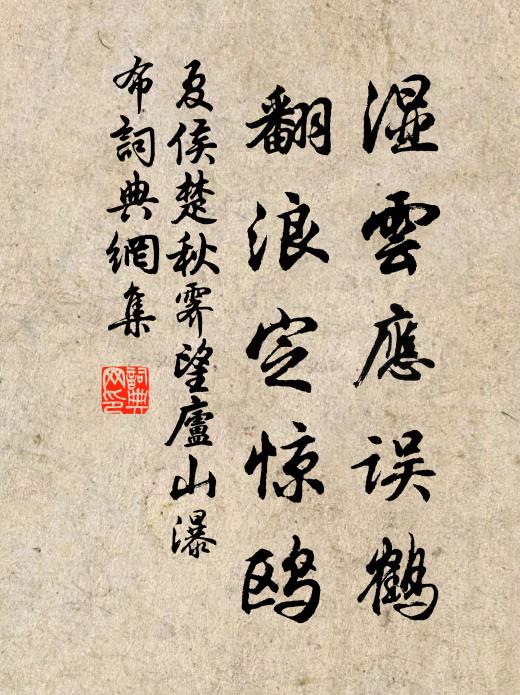 湿雲應误鶴
翻浪定惊鸥
夏侯楚秋霽望廬山瀑
布詞典網集
詞典
网印